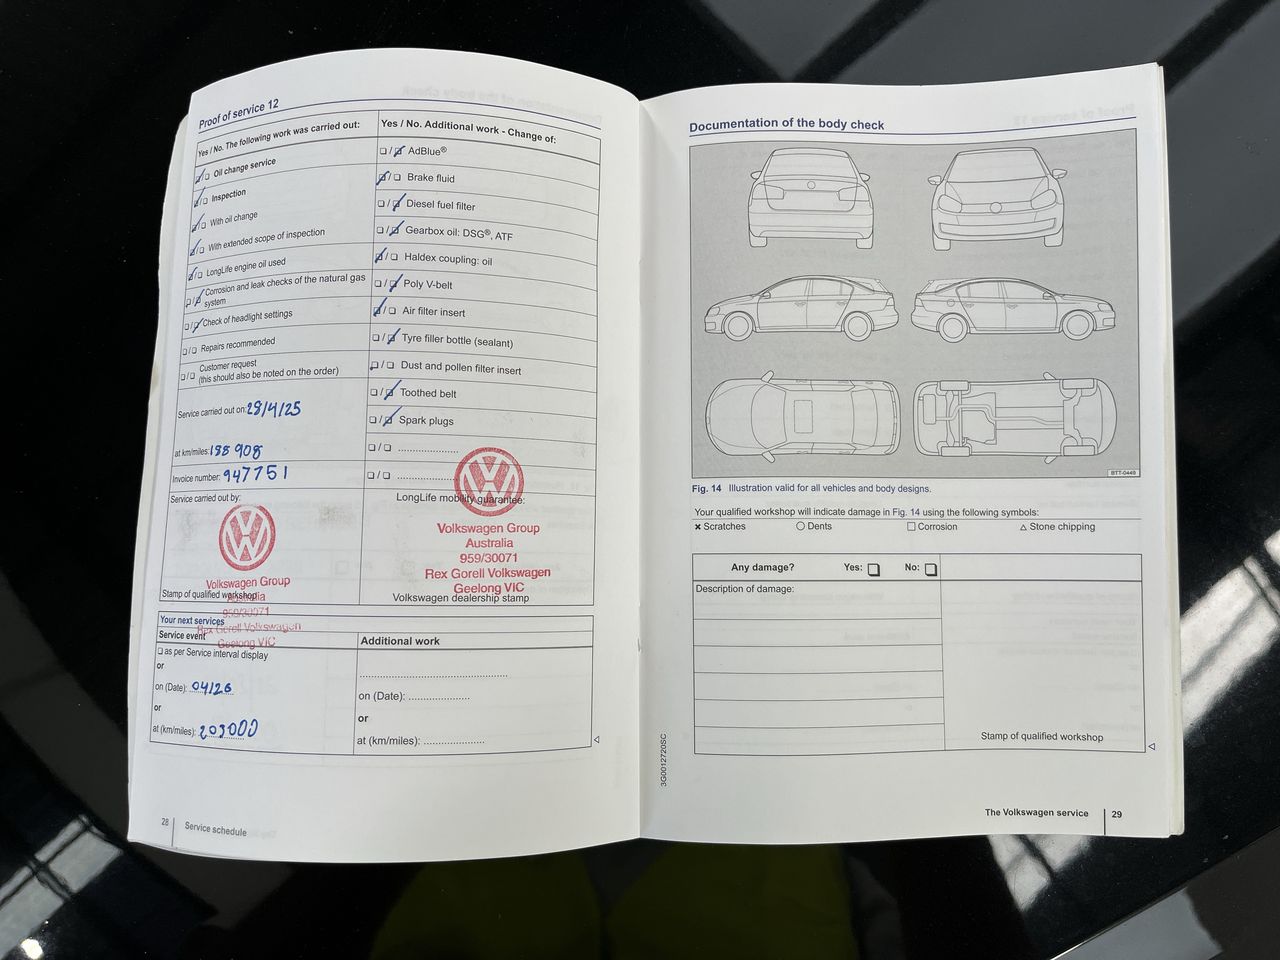 Proof of service 12
Yes / No. The following work was carried out:
❏ / ❏ Oil change service
❏ / ❏ Inspection
❏ / ❏ With oil change
❏ / ❏ With extended scope of inspection
❏ / ❏ LongLife engine oil used
❏ / ❏ Corrosion and leak checks of the natural gas
system
❏ / ❏ Check of headlight settings
❏ / ❏ Repairs recommended
❏ / ❏ Customer request
(this should also be noted on the order)
Service carried out on: 28/4/25
at km/miles: 188 908
Invoice number: 947751
Service carried out by:
Volkswagen Group
Australia
959/30071
Rex Gorell Volkswagen
Geelong VIC
Stamp of qualified workshop
Yes / No. Additional work - Change of:
❏ / ❏ AdBlue®
❏ / ❏ Brake fluid
❏ / ❏ Diesel fuel filter
❏ / ❏ Gearbox oil: DSG®, ATF
❏ / ❏ Haldex coupling: oil
❏ / ❏ Poly V-belt
❏ / ❏ Air filter insert
❏ / ❏ Tyre filler bottle (sealant)
❏ / ❏ Dust and pollen filter insert
❏ / ❏ Toothed belt
❏ / ❏ Spark plugs
❏ / ❏ ....................
❏ / ❏ ....................
LongLife mobility guarantee:
Volkswagen Group
Australia
959/30071
Rex Gorell Volkswagen
Geelong VIC
Volkswagen dealership stamp
Your next services
Service event
❏ as per Service interval display
or
on (Date): 04/26
or
at (km/miles): 203000
Additional work
on (Date): ....................
or
at (km/miles): ....................
28
Service schedule
Documentation of the body check
BTT-0449
Fig. 14 Illustration valid for all vehicles and body designs.
Your qualified workshop will indicate damage in Fig. 14 using the following symbols:
× Scratches ○ Dents □ Corrosion △ Stone chipping
Any damage? Yes: ❏ No: ❏
Description of damage:
Stamp of qualified workshop
3G0012720SC
The Volkswagen service
29